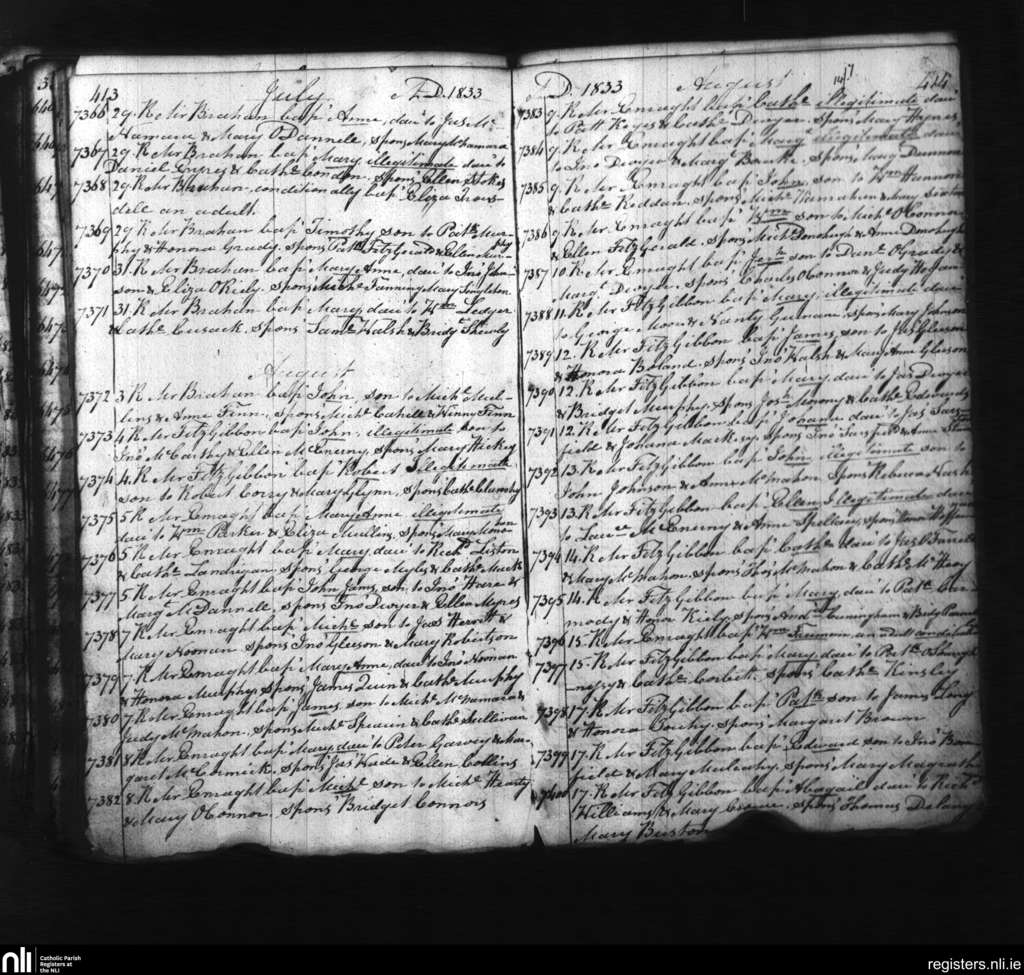 413 July A.D. 1833
7366 29. R Mr Brahan bap Anne, dau to Jas Mc
Namara & Mary O Dannell, Spons Mary McNamara
7367 29. R Mr Brahan bap Mary illegitimate dau to
Daniel & Cathe Condon. Spons Ellen Stokes
7368 29. R Mr Brahan, conditionally bap Eliza
dell an adult.
7369 29 R Mr Brahan bap Timothy son to Patk Mur-
phy & Honora Grady. Spons Patk FitzGerald & Ellen Mur-
phy
7370 31. R Mr Brahan bap Mary Anne, dau to Jno John-
son & Eliza O Kiely. Spons Miche Fanning Mary Singleton
7371 31. R Mr Brahan bap Mary dau to Wm Ledger
& Cathe Cusack. Spons Saml Walsh & Bridg Sheedy
August
7372 3 R Mr Brahan bap John, son to Miche Mul-
lins & Anne Finn. Spons Miche Cahill & Winny Finn
7373 4 R Mr FitzGibbon bap John, illegitimate son to
Jno McCarthy & Ellen McEnerny, Spons Mary Hickey
7374 4. R Mr FitzGibbon bap Robert Illegitimate
son to Robert Corry & Mary Glynn, Spons Cathe
7375 5 R Mr Enraght bap Mary Anne illegitimate
dau to Wm Parker & Eliza Mullins, Spons Mary
7376 5 R Mr Enraght bap Mary dau to Richd Liston
& Cathe Landrigan Spons George Myles & Cathe
7377 5 R Mr Enraght bap John James, son to Jno Hare &
Marg McDannell, Spons Jno Dwyer & Ellen
7378 7 R Mr Enraght bap Miche son to Jas &
Mary Noonan Spons Jno Gleeson & Mary Robertson
7379 7. R Mr Enraght bap Mary Anne, dau to Jno Noonan
& Honora Murphy Spons James Quin & Cathe Murphy
7380 7 R Mr Enraght bap James, son to Miche McNamara &
Judy McMahon. Spons Miche & Cathe Sullivan
7381 8 R Mr Enraght bap Mary dau to Peter Garvey & Mar-
garet McCormick. Spons Jas Wade & Ellen Collins
7382 8. R Mr Enraght bap Miche son to Miche Hearty
& Mary O Connor. Spons Bridget Connors
A.D. 1833 August 147 414
7383 9. R Mr Enraght bap Cathe illegitimate dau
to Patt Keyes & Cathe Dwyer. Spons Mary Haynes
7384 9. R Mr Enraght bap Mary illegitimate dau
to Jno Dwyer & Marg Bourke. Spons
7385 9. R Mr Enraght bap John son to Wm Hannon
& Cathe Reddan. Spons Miche & Mary
7386 9. R Mr Enraght bap Wm son to Miche O Connor
& Ellen FitzGerald. Spons Miche Donohogh & Anne Donohogh
7387 10. R Mr Enraght bap son to Danl O Grady &
Marg Dwyer. Spons Charles O Connor & Judy
7388 11. R Mr FitzGibbon bap Mary, illegitimate dau
to George Moore & Nanty. Spons Mary Johnson
7389 12. R Mr FitzGibbon bap James, son to Jas Gleeson
& Honora Boland. Spons Jno Walsh & Mary Anne Gleeson
7390 12. R Mr FitzGibbon bap Mary dau to Jas Dwyer
& Bridget Murphy. Spons & Cathe Edwards
7391 12. R Mr FitzGibbon bap Johanna dau to Jas Sars-
field & Johana Mackesy. Spons Jno Sarsfield & Anne
7392 13. R Mr FitzGibbon bap John illegitimate son to
John Johnson & Anne McMahon Spons Rebecca Nash
7393 13. R Mr FitzGibbon bap Ellen Illegitimate dau
to Lawe McEnerny & Anne, spons
7394 14. R Mr FitzGibbon bap Cathe dau to Jas O Farrell
& Mary McMahon. Spons Thos McMahon & Cathe
7395 14. R Mr FitzGibbon bap Mary dau to Patk Cur-
moody & Honor Kiely. Spons Andw Cuningham & Bidy
7396 15. R Mr Enraght bap Wm Freeman, an
7397 15. R Mr FitzGibbon bap Mary, dau to Patk
& Cathe Corbett, Spons Cathe Kinsley
7398 17. R Mr FitzGibbon bap Patk son to James Long
& Honora. Spons Margaret Brown
7399 17. R Mr FitzGibbon bap Edward son to Jno Bon
field & Mary Mulcahy. Spons Mary Magrath
7400 17. R Mr FitzGibbon bap Abagail dau to Richd
Williams & Mary. Spons Thomas Delany
Mary Burton
nli Catholic Parish
Registers at
the NLI
registers.nli.ie